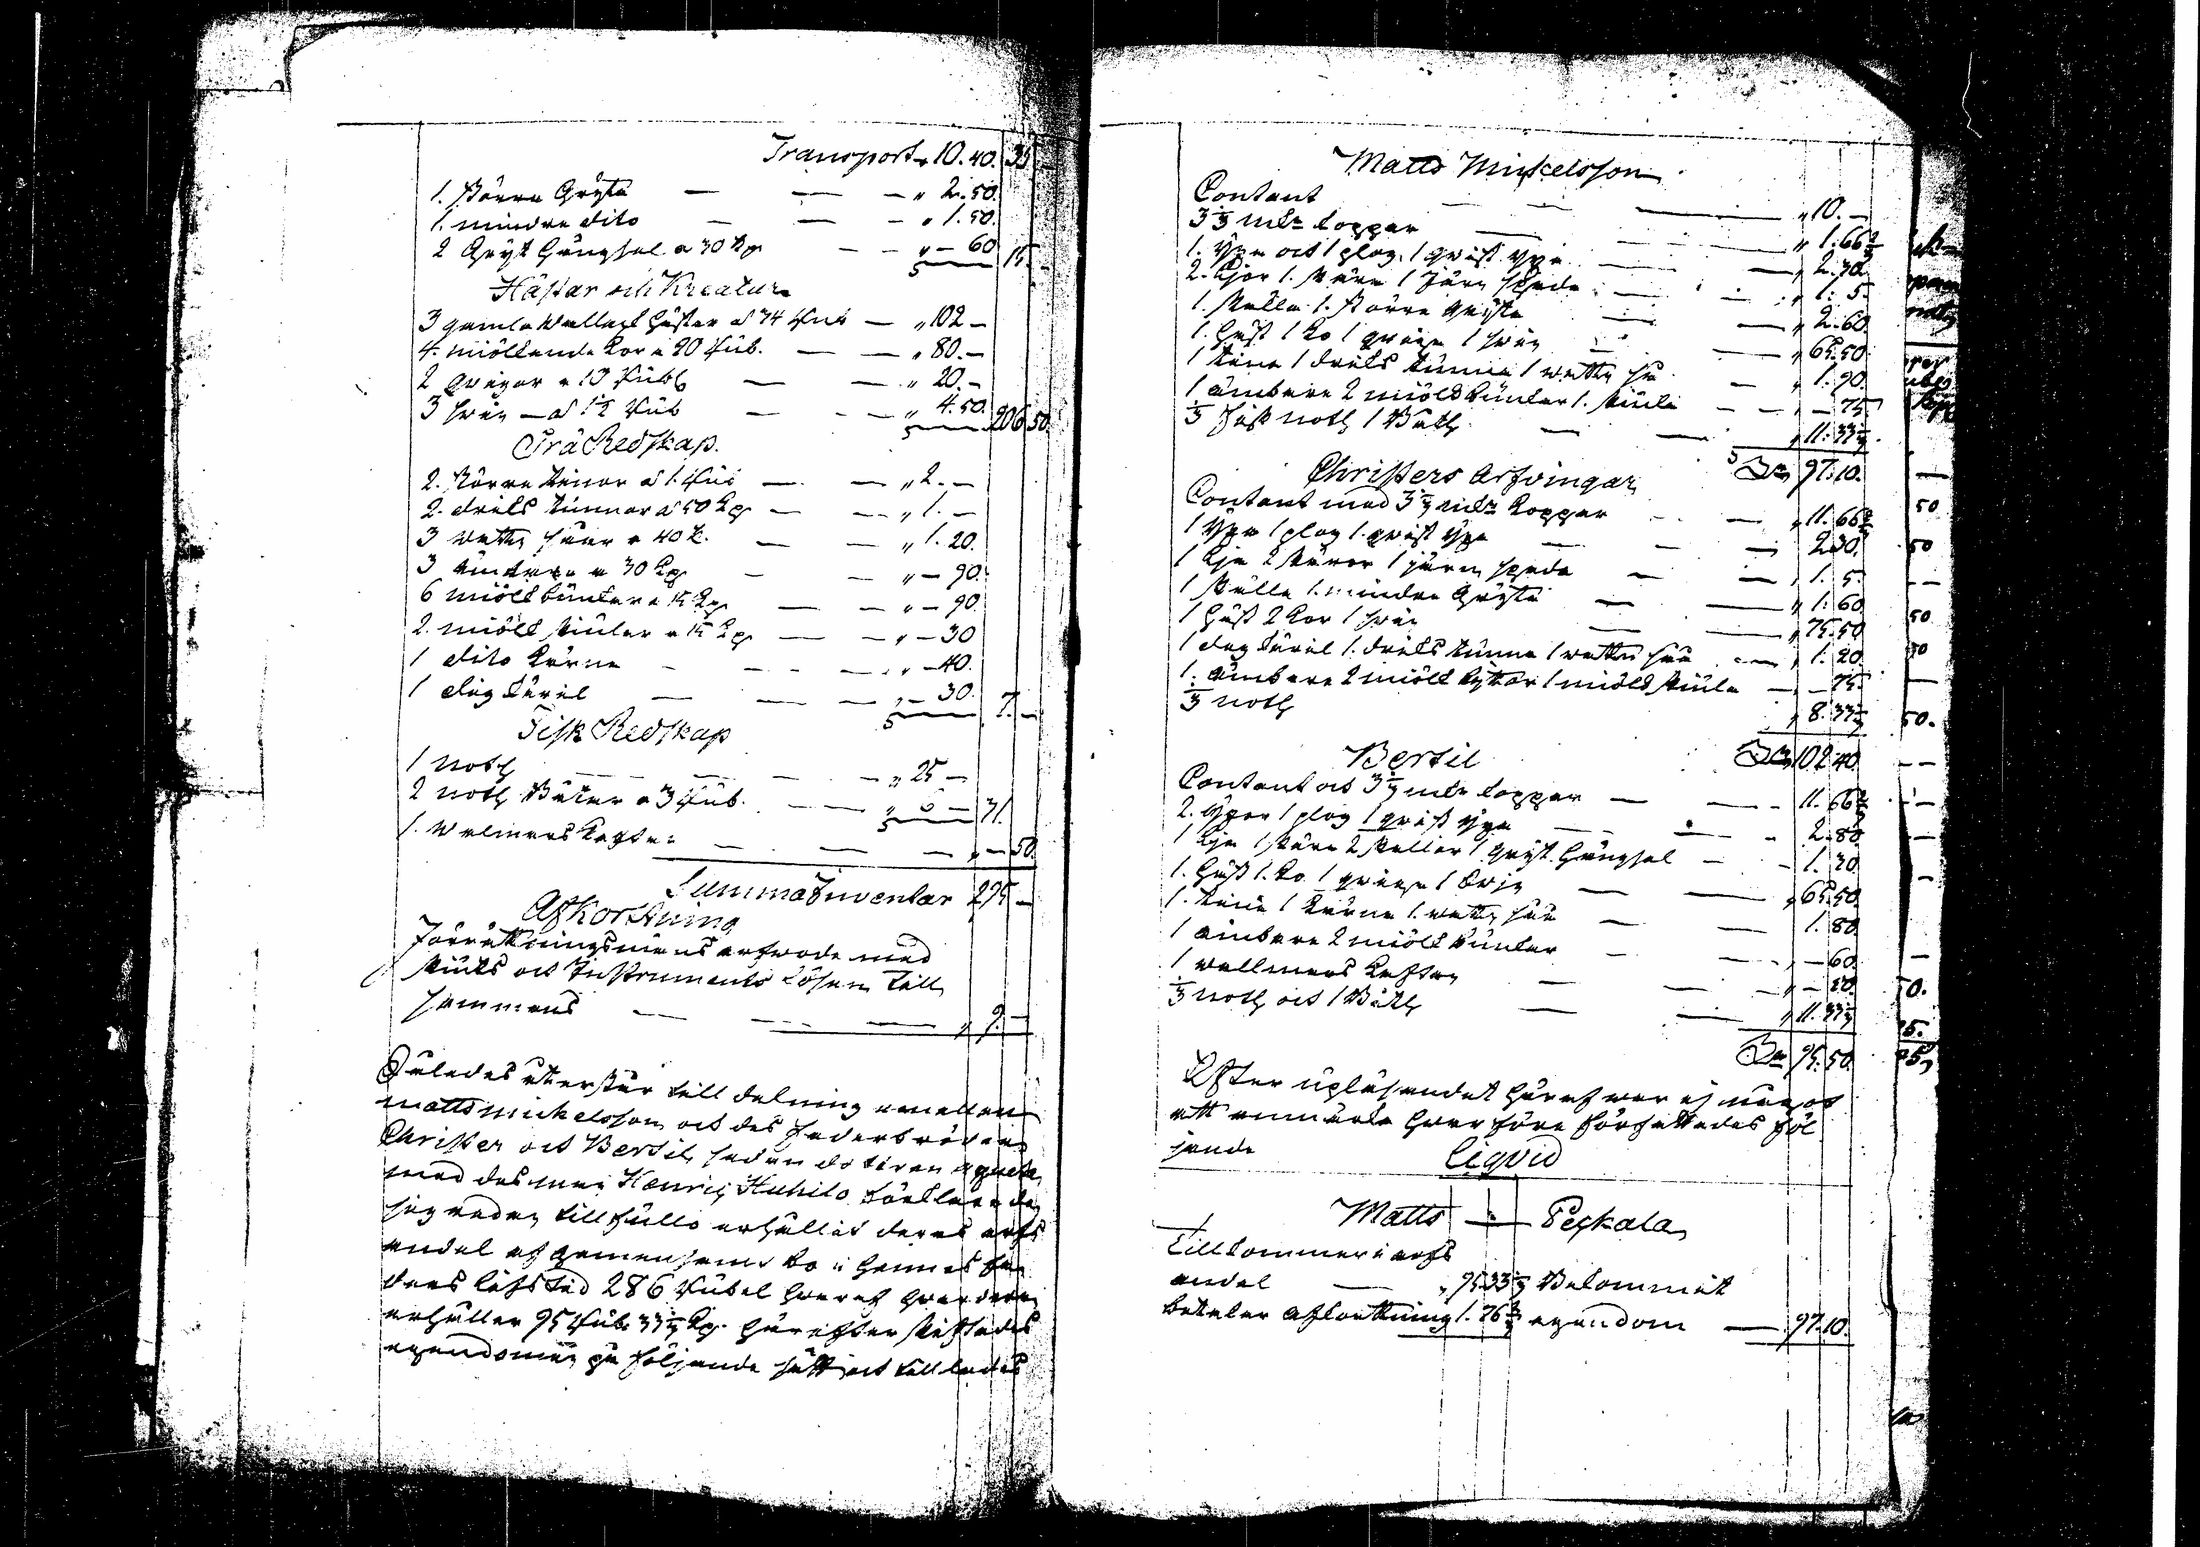 Transport " 10. 40. 35
1. större Gryta — — — " 2. 50.
1. mindre dito — — — " 1. 50.
2 Gryt Hängsel a 30 kp — — " — 60 15. —
Hästar och Kreatur
3 gamla Wallack Hästar a 34 Rub — " 102 —
4. miölkande kor a 20 Rub. — — " 80. —
2 qvigor a 10 Rubl — — " 20. —
3 swin — a 1½ Rub — — " 4. 50. 206 50.
Trä Redskap.
2. större tinor a 1. Rub — — " 2. —
2. dricks tunnor a 50 kp — — " 1. —
3 wattu såar a 40 k. — — " 1. 20.
3 ämbare a 30 kp — — " — 90.
6 miölk bunkar a 15 kp — — " — 90
2. miölk stäntor a 15 kp — — " — 30
1 dito kärna — — — " — 40.
1 deg käril — — " — 30. 7. —
Fisk Redskap
1 noth — — — " 25 —
2 noth Båtar a 3 Rub. — — " 6 — 31.
1. walmars kaftan — — — " — 50.
Summa Inventar 275 —
Afkortning
Förrättningsmens arfwode med
skiuts och Instruments lösen till
sammans — — — " 9. —
Således återstår till delning emellan
Matts Mickelsson och des faderbröder
Christer och Bertil, sedan dotteren Agneta
med des man Henric Huhilo förklarade
sig redan till fullo erhållit deras arfs
andel af gemensamt bo i hennes fa
ders lifstid 286 Rubel hwaraf hwardera
erhåller 95 Rub. 33⅓ kp. härefter skiftades
egendomen på följande sätt och tillades
Matts Mickelsson
Contant — — — " 10. —
3⅓ mk koppar — — " 1. 66⅔
1. Yxa och 1 plog, 1 qvist yxa — — " 2. 30.
2. Lior 1. skära 1 järn spada — — " 1. 5.
1. skälla 1. större gryta — — " 2. 60.
1. Häst 1 ko 1 qviga 1 swin — — " 65. 50.
1 tina 1 dricks tunna 1 wattu så — " 1. 90.
1 ämbare 2 miölkbunkar 1. stänta — — " — 75
⅓ fisk noth 1 Båth — — " 11. 33⅓.
Sa 97. 10.
Christers Arfvingar
Contant med 3⅓ mk koppar — — " 11. 66⅔
1 Yxa 1 plog 1. qvist yxa — — 2. 30.
1 Lia 2 skäror 1 järn spada — — " 1. 5.
1 skälla 1. mindre Gryta — — " 1. 60
1 Häst 2 kor 1 swin — — " 75. 50
1 deg käril 1. dricks tunna 1 wattu såå — " 1. 20.
1. ämbare 2 miölk byttor 1 miölk stänta — " — 75.
⅓ noth " 8. 33⅓
Sa 102. 40.
Bertil
Contant och 3⅓ mk koppar — — 11. 66⅔
2. Yxor 1 plog 1 qvist yxa — — 2. 80
1 Lia 1 skära 2 skällor 1 gryt Hängsel — — 1. 30
1. Häst 1. ko 1 qviga 1 swin — — " 65. 50
1. tina 1 kärna 1. wattu såå — — 1. 80
1 ämbare 2 miölk bunkar — — " — 60.
1 wallmars kaftan — — " — 50.
⅓ noth och 1 Båth — — " 11. 33⅓
Sa 95. 50.
Efter upläsandet häraf war ej något
att anmärka hwarföre författades föl
jande
Liqvid
Matts — Peckala
Tillkommer i arfs
andel — " 95 33⅓ Bekommit
betalar afkortning 1. 76⅔ egendom — 97. 10.